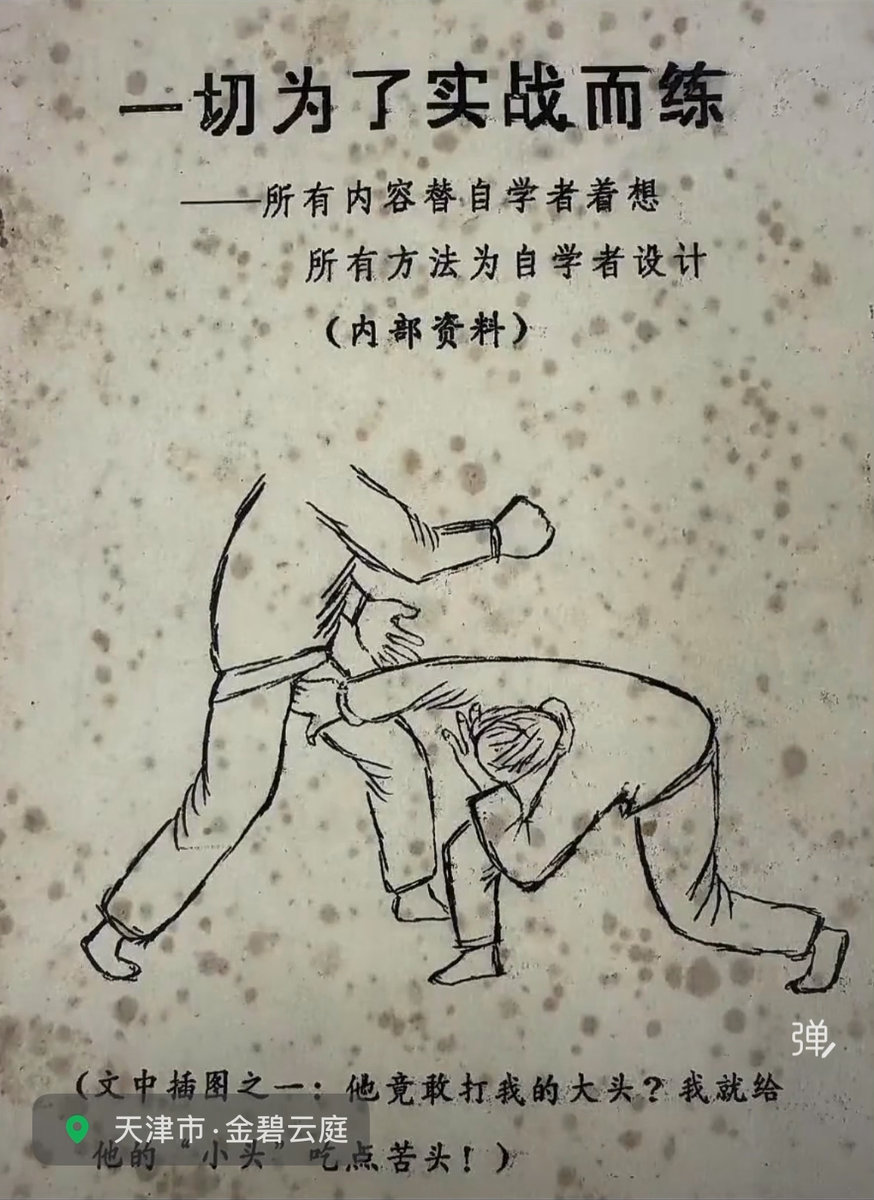 一切为了实战而练
——所有内容替自学者着想
所有方法为自学者设计
（内部资料）
弹
（文中插图之一：他竟敢打我的大头？我就给
天津市·金碧云庭
他的“小头”吃点苦头！）